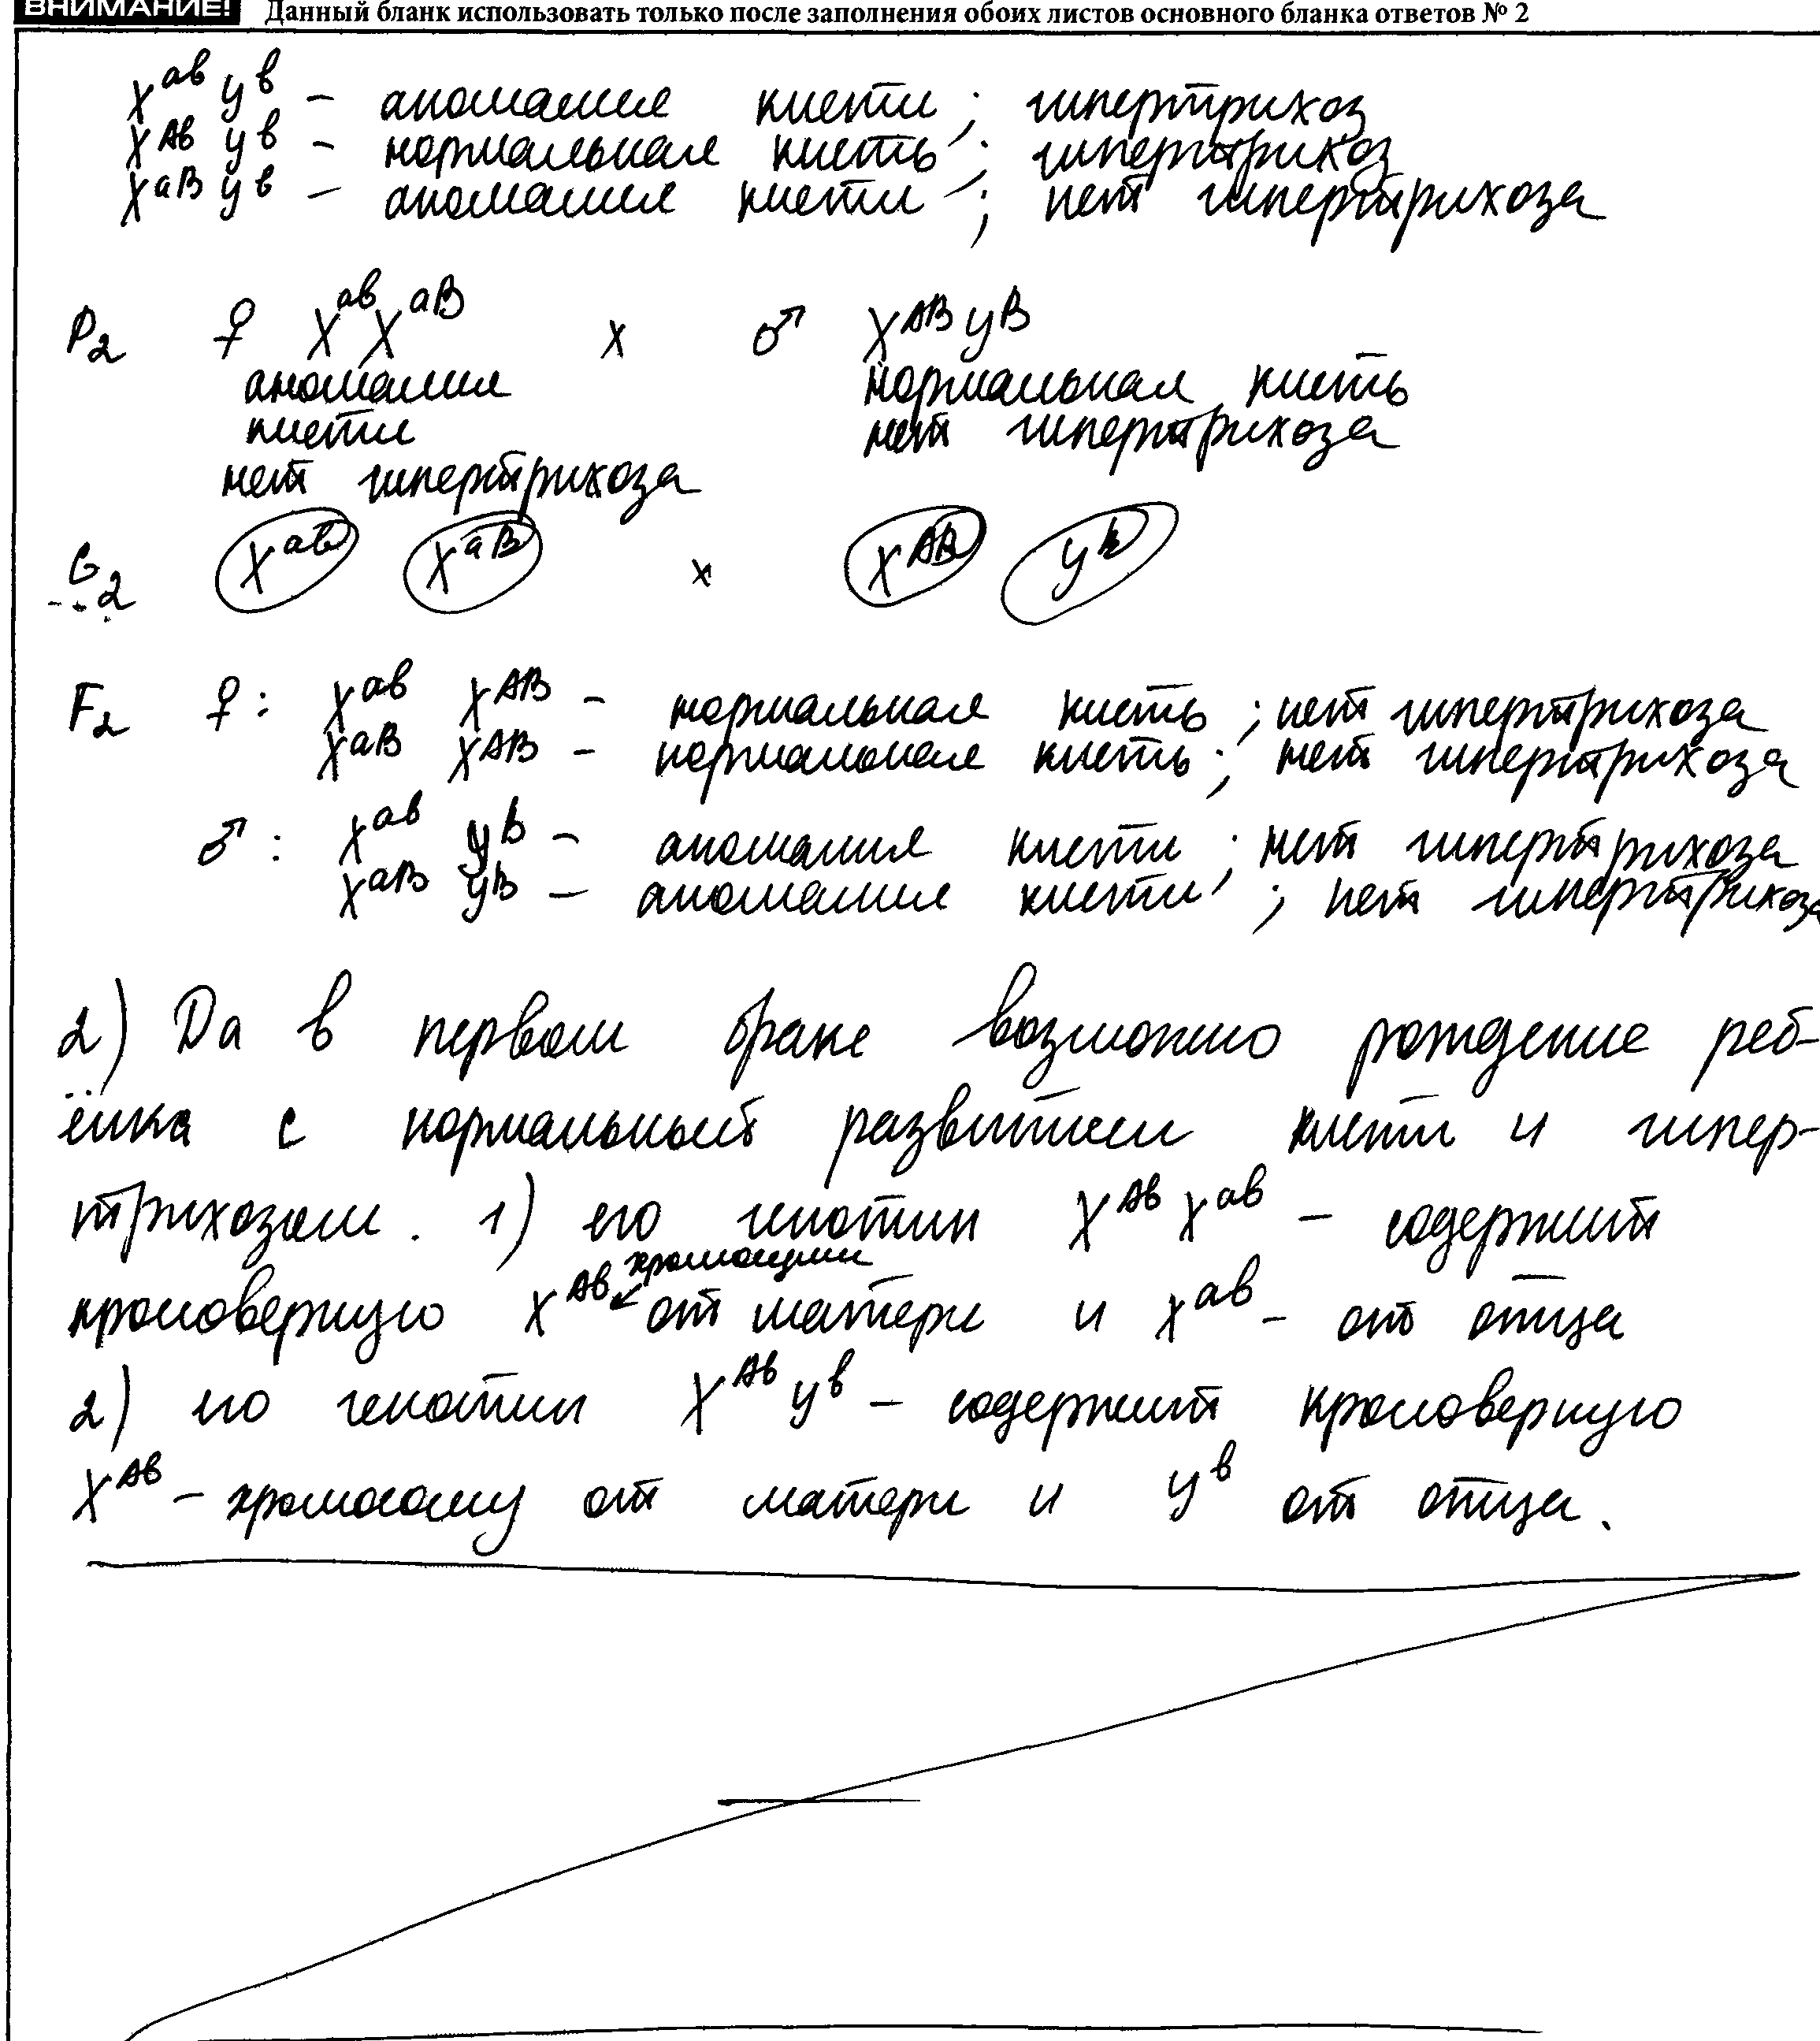 ВНИМАНИЕ! Данный бланк использовать только после заполнения обоих листов основного бланка ответов № 2
X^ab y^b – аномалия кисти; гипертрихоз
X^Ab y^b – нормальная кисть; гипертрихоз
X^aB y^b – аномалия кисти; нет гипертрихоза
P₂ ♀ X^ab X^aB x ♂ X^AB y^B
аномалия нормальная кисть
кисти нет гипертрихоза
нет гипертрихоза
G₂ X^ab X^aB x X^AB y^B
F₂ ♀: X^ab X^AB – нормальная кисть; нет гипертрихоза
X^aB X^AB – нормальная кисть; нет гипертрихоза
♂: X^ab y^B – аномалия кисти; нет гипертрихоза
X^aB y^B – аномалия кисти; нет гипертрихоза
2) Да в первом браке возможно рождение реб-
ёнка с нормальный развитием кисти и гипер-
трихозом. 1) его генотип X^Ab X^ab – содержит
хромосому
кроссоверную X^Ab ↙ от матери и X^ab – от отца
2) его генотип X^Ab y^b – содержит кроссоверную
X^Ab – хромосому от матери и y^b от отца.